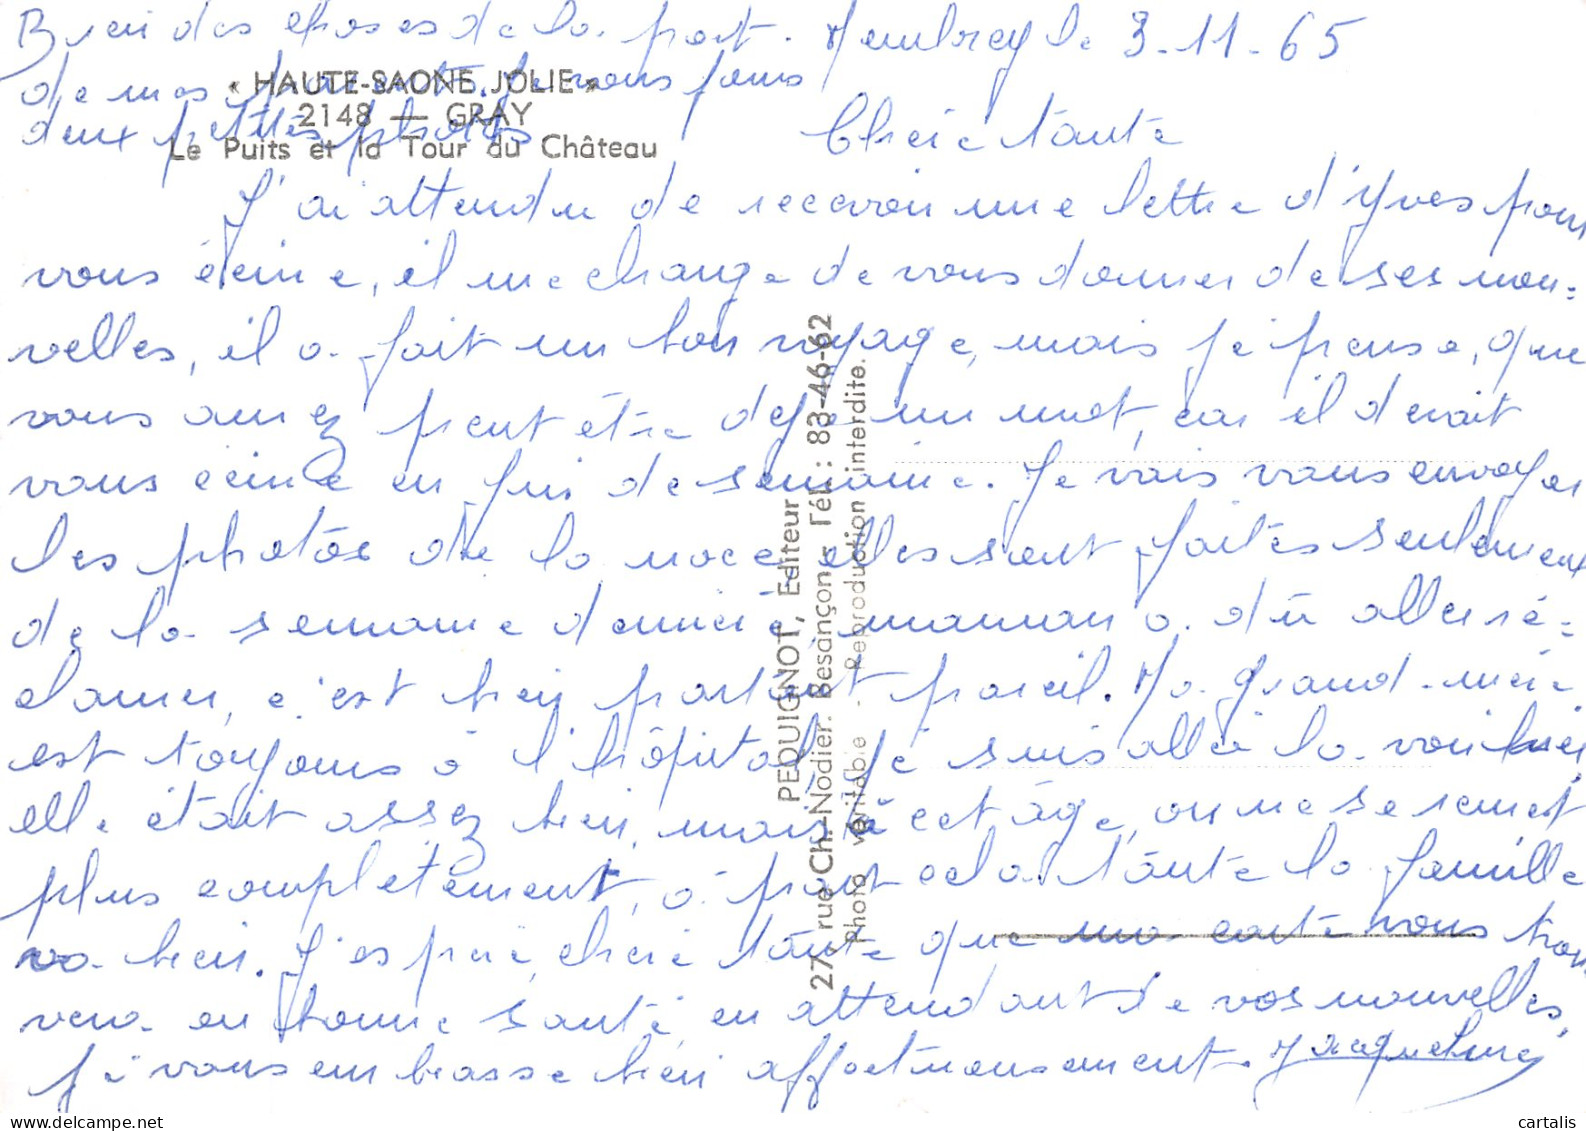 Bien des choses de la part. Membrey le 3-11-65
de mes parents. Je vous joins
deux petites photos
« HAUTE-SAONE JOLIE »
2148 — GRAY
Le Puits et la Tour du Château
Chère tante
J'ai attendu de recevoir une lettre d'Yves pour
vous écrire, il me charge de vous donner de ses nou-
velles, il a fait un bon voyage, mais je pense, que
vous aurez peut être déjà un mot, car il devait
vous écrire en fin de semaine. Je vais vous envoyer
les photos de la noce elles sont faites seulement
de la semaine dernière, maman a dû aller ré-
clamer, c'est bien partout pareil. Ma grand-mère
est toujours à l'hôpital, je suis allée la voir hier
elle était assez bien, mais à cet âge, on ne se remet
plus complètement, à part cela tante la famille
va bien. J'espère chère tante que ma carte vous trou
vera en bonne santé, en attendant de vos nouvelles,
je vous embrasse bien affectueusement. Jacqueline
PEQUIGNOT, Editeur
27, rue Ch.-Nodier. Besançon - Tél. : 83-46-62
Photo véritable - Reproduction interdite.
www.delcampe.net
cartalis